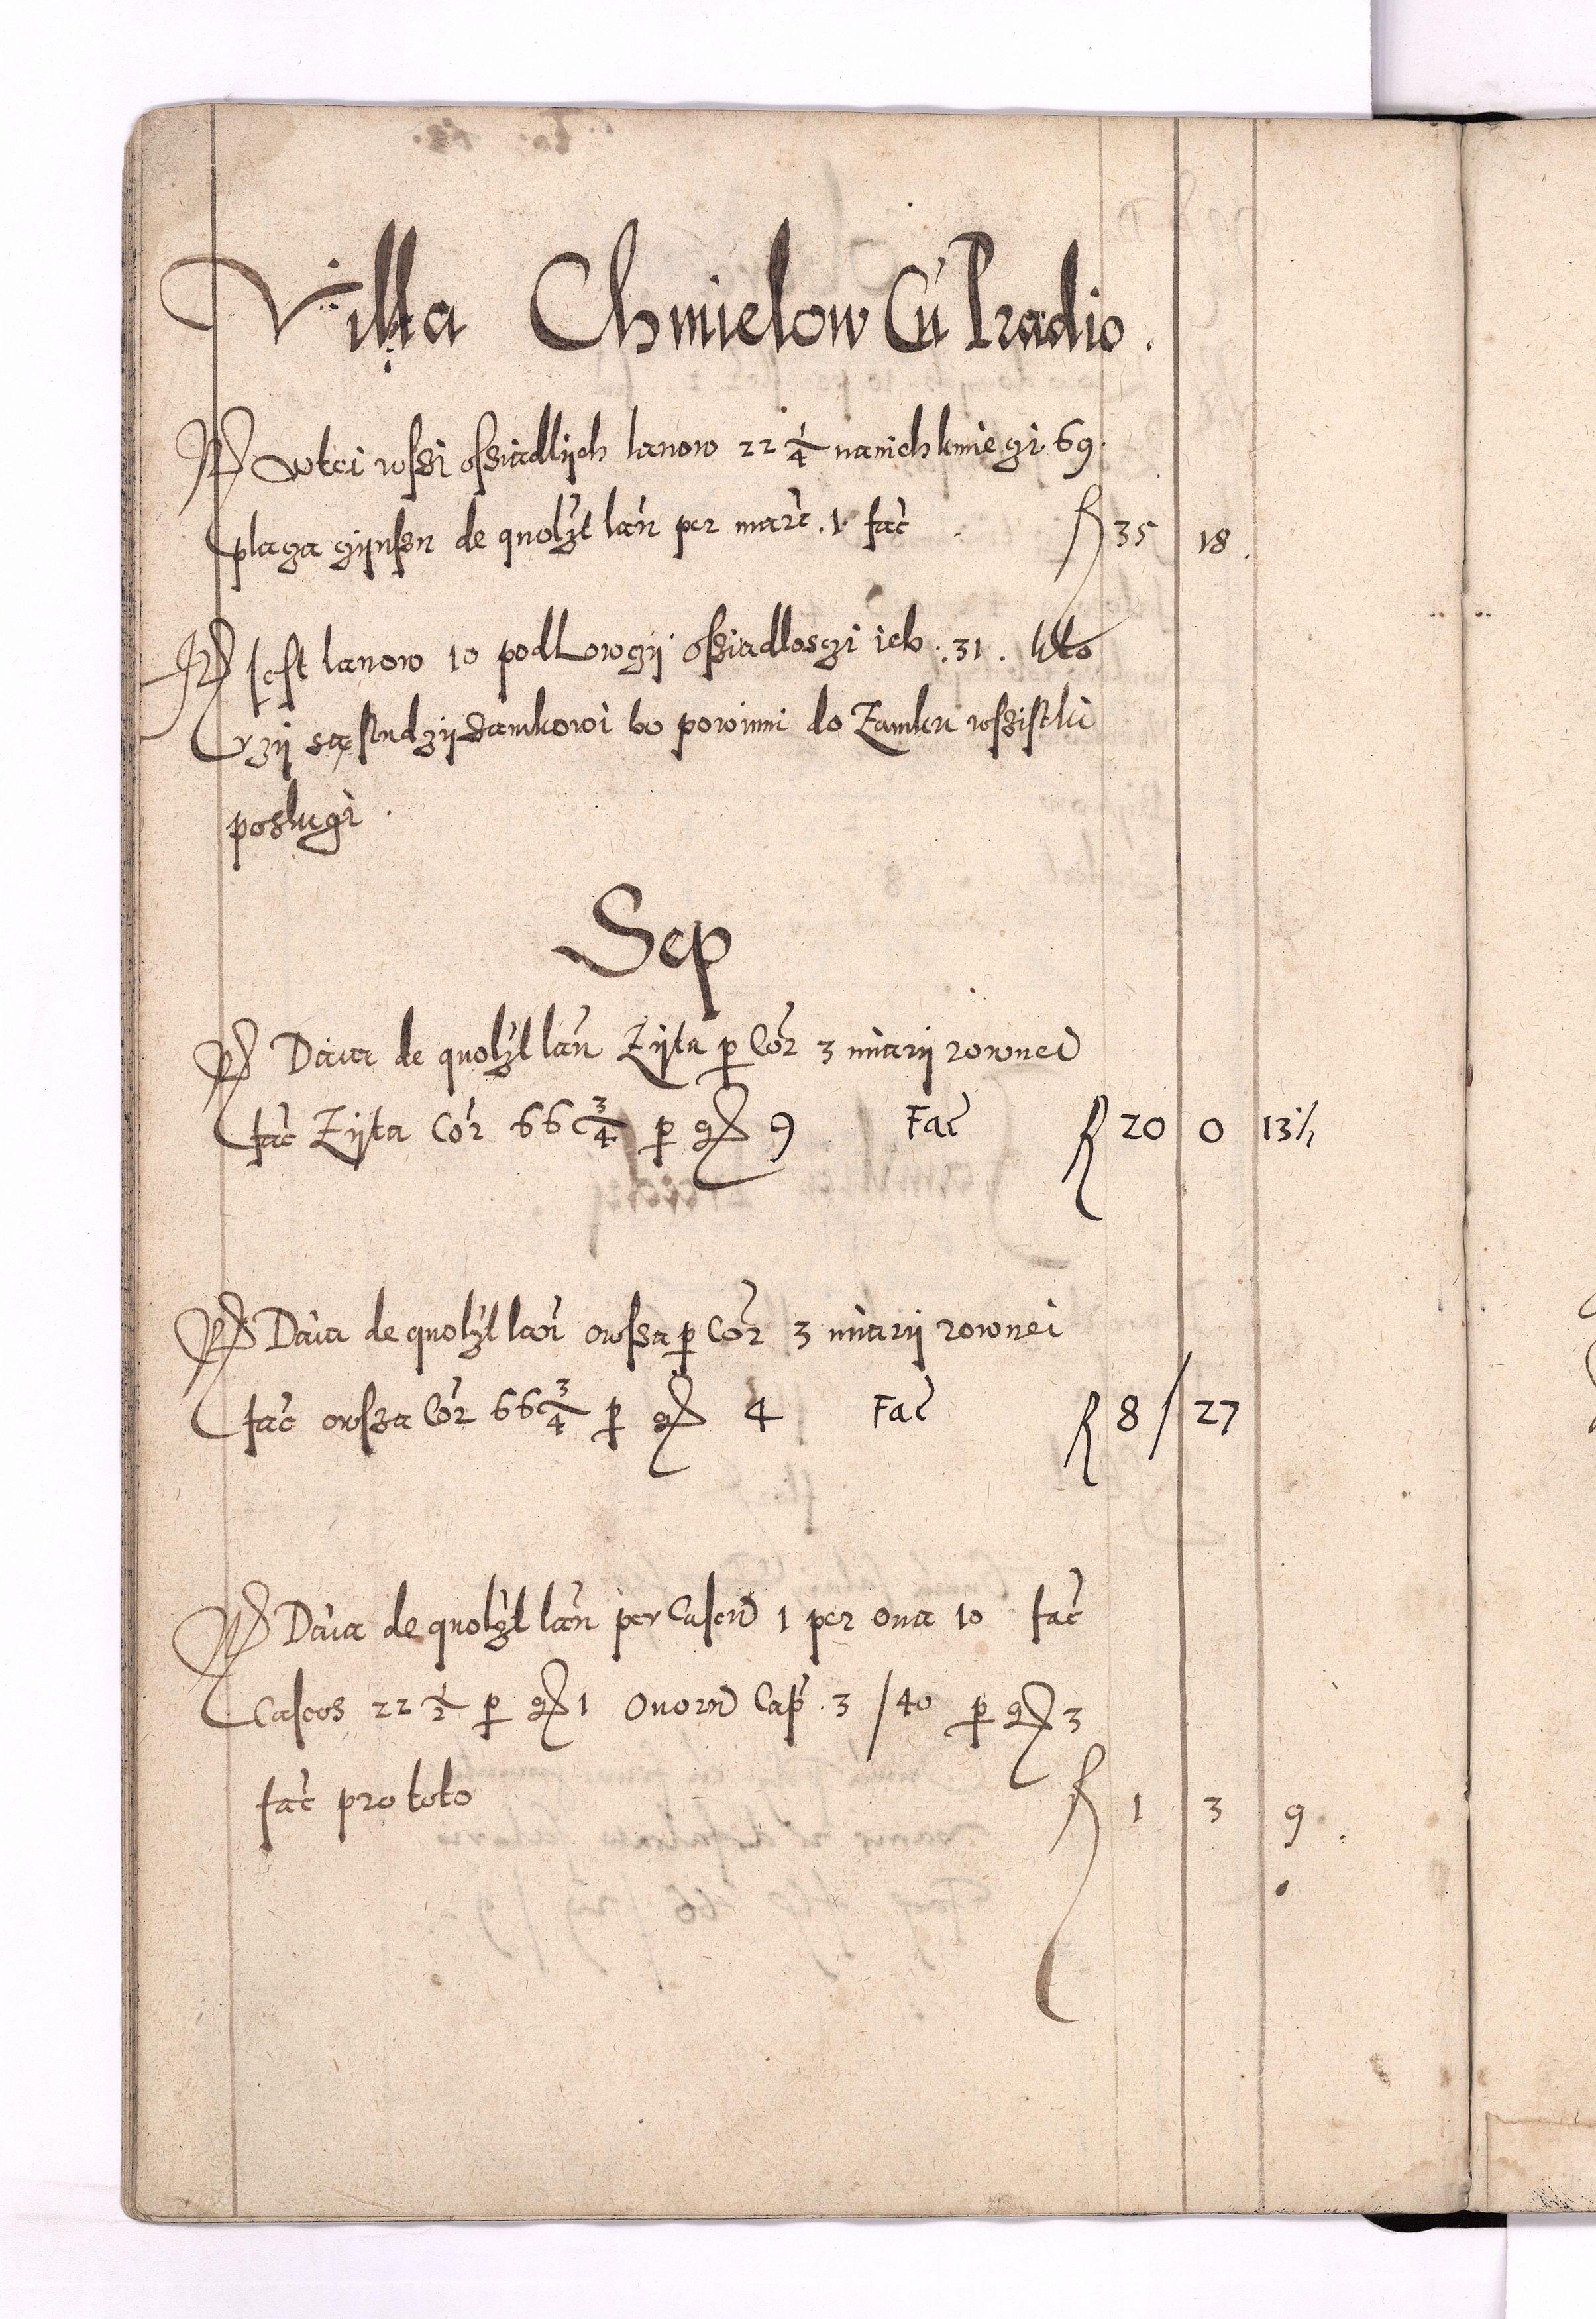 Villa Chmielow Cu Pradio.
It wtei wssi ossiadlijch lanow 22 1/4 nanich kmiegi. 69.
plaga gijnssu de quolzt lan per marc. 1 fac f 35 18.
It Jest lanow 10 podLowgij ossiadlosgi ich : 31. kto
rzij sąsludzijzamkowi bo powinni do Zamku wssistki
poslugi.
Sep
It Daia de quolzt lan Zijta p Cor 3 miarij rownei
fac Zijta Cor 66 3/4 p g 9 Fac f 20 0 13 1/2
It Daia de quolzt lan owssa p Cor 3 miarij rownei
fac owssa Cor 66 3/4 p g 4 Fac f 8 / 27
It Daia de quolzt lan per Caseu 1 per oua 10 fac
Caseos 22 1/2 p g 1 Ouoru Cap. 3 / 40 p g 3
fac pro toto f 1 3 9.